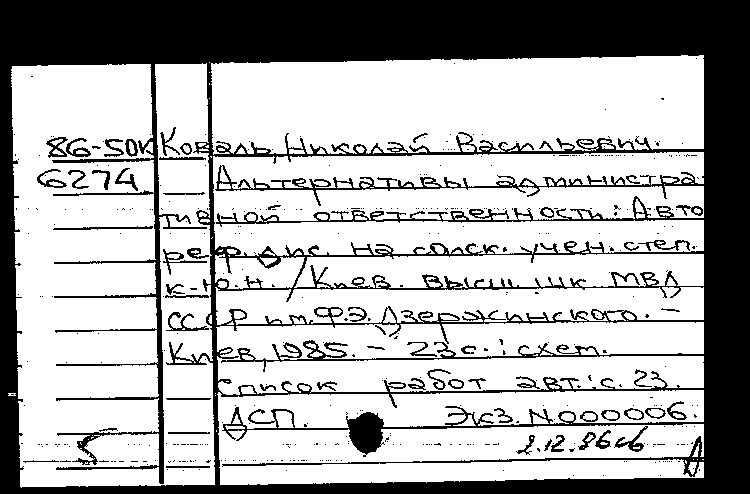 86-50К Коваль, Николай Васильевич.
6274 Альтернативы администра-
тивной ответственности: Авто
реф. дис. на соиск. учен. степ.
к.ю.н. / Киев. высш. шк МВД
СССР им. Ф.Э. Дзержинского. -
Киев, 1985. - 23 с.: схем.
Список работ авт.: с. 23.
ДСП. Экз. N 000006.
2.12.86